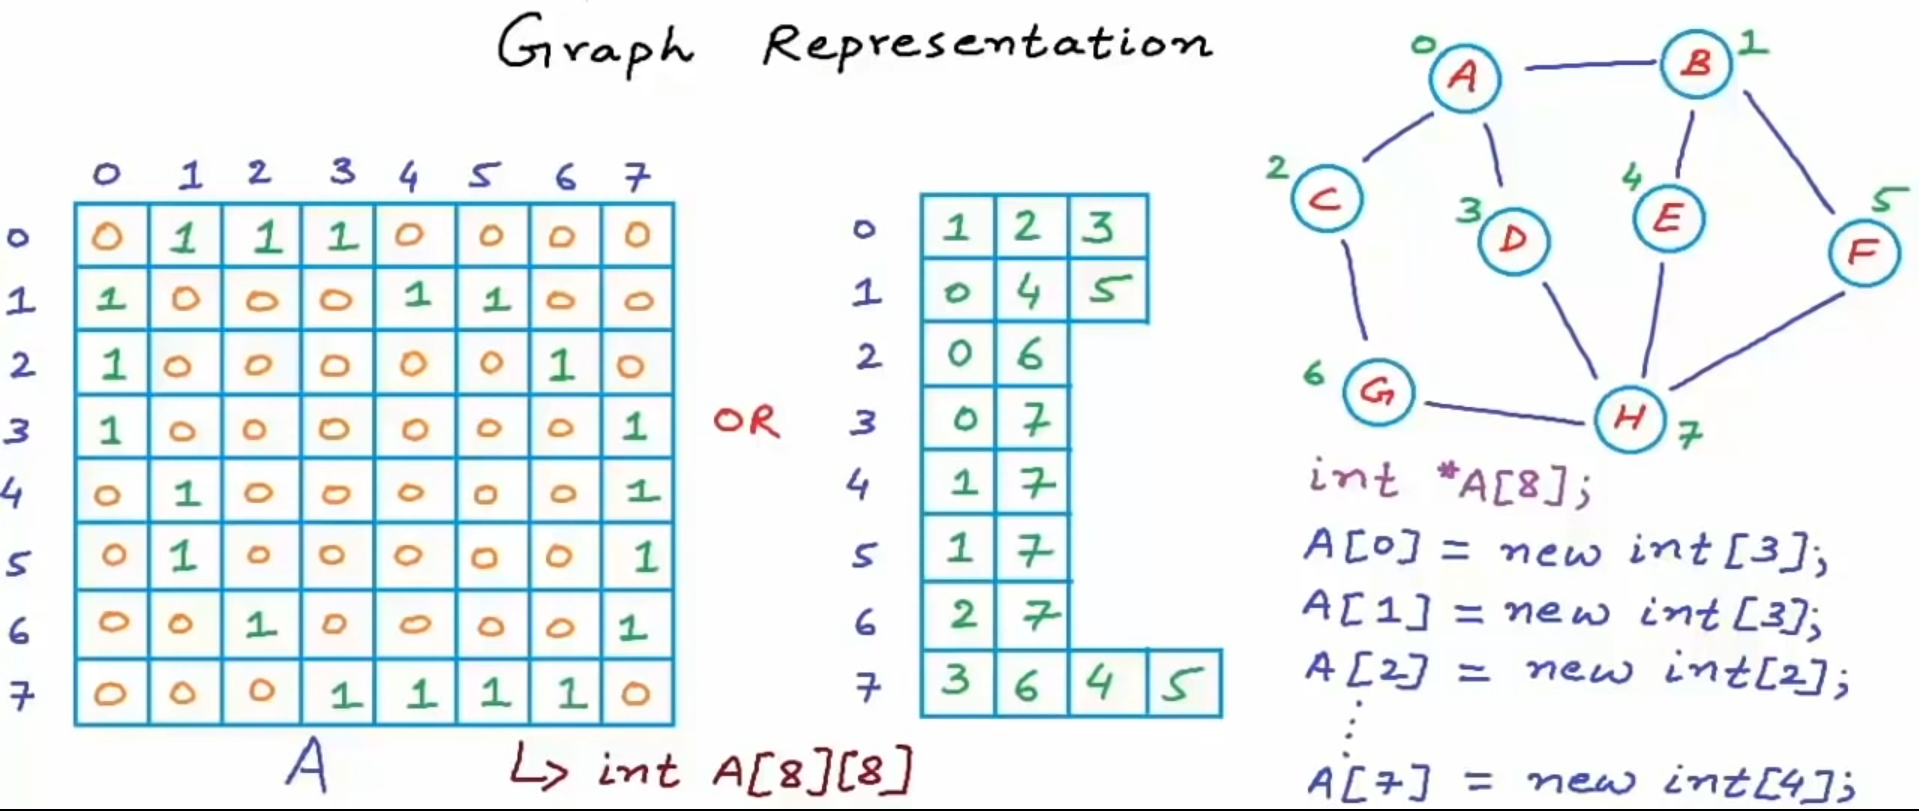 Graph Representation
0 1 2 3 4 5 6 7
0 0 1 1 1 0 0 0 0
1 1 0 0 0 1 1 0 0
2 1 0 0 0 0 0 1 0
3 1 0 0 0 0 0 0 1
4 0 1 0 0 0 0 0 1
5 0 1 0 0 0 0 0 1
6 0 0 1 0 0 0 0 1
7 0 0 0 1 1 1 1 0
A
int A[8][8]
OR
0 1 2 3
1 0 4 5
2 0 6
3 0 7
4 1 7
5 1 7
6 2 7
7 3 6 4 5
0 A
B 1
2 C
3 D
4 E
5 F
6 G
H 7
int *A[8];
A[0] = new int[3];
A[1] = new int[3];
A[2] = new int[2];
A[7] = new int[4];